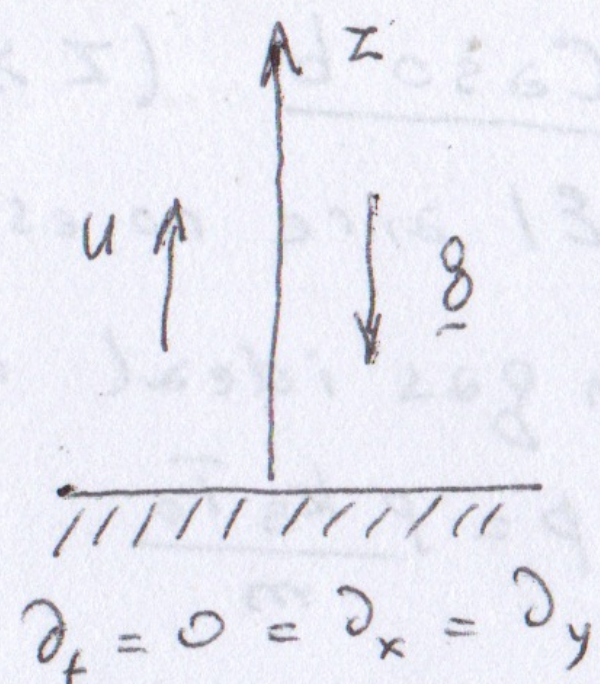 z
u
g
∂t = 0 = ∂x = ∂y